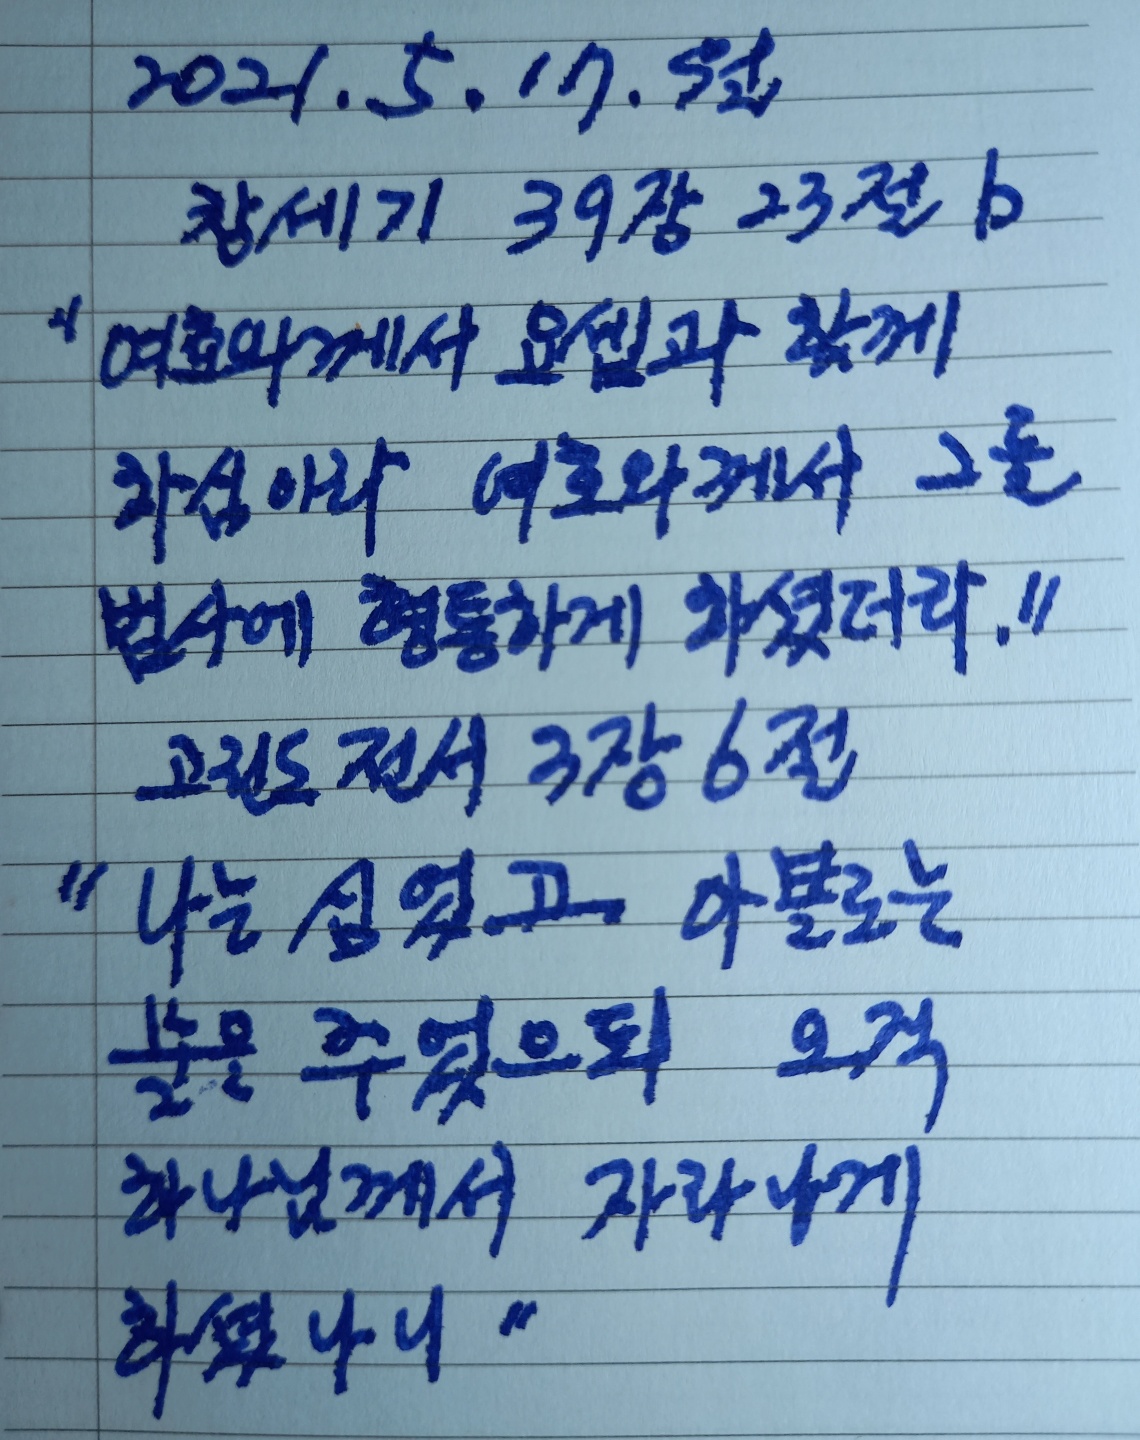 2021. 5. 17. 5월
창세기 39장 23절 b
"여호와께서 요셉과 함께
하심이라 여호와께서 그를
범사에 형통하게 하셨더라."
고린도 전서 3장 6절
"나는 심었고 아볼로는
물을 주었으되 오직
하나님께서 자라나게
하셨나니"